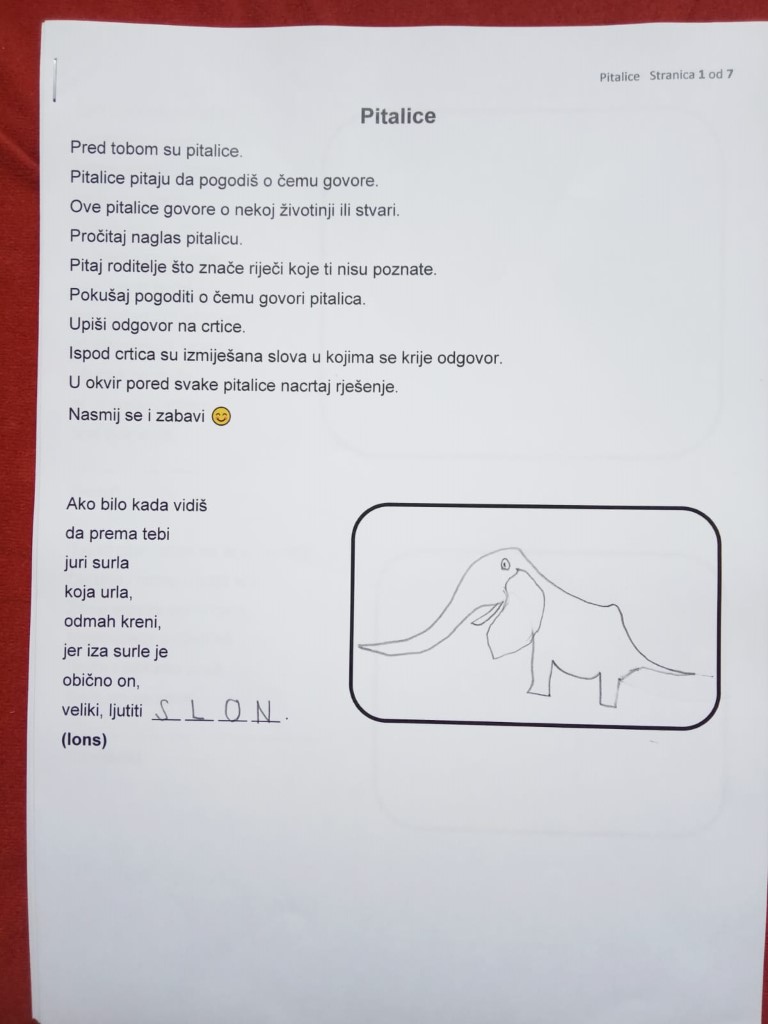 Pitalice Stranica 1 od 7
Pitalice
Pred tobom su pitalice.
Pitalice pitaju da pogodiš o čemu govore.
Ove pitalice govore o nekoj životinji ili stvari.
Pročitaj naglas pitalicu.
Pitaj roditelje što znače riječi koje ti nisu poznate.
Pokušaj pogoditi o čemu govori pitalica.
Upiši odgovor na crtice.
Ispod crtica su izmiješana slova u kojima se krije odgovor.
U okvir pored svake pitalice nacrtaj rješenje.
Nasmij se i zabavi 😊
Ako bilo kada vidiš
da prema tebi
juri surla
koja urla,
odmah kreni,
jer iza surle je
obično on,
veliki, ljutiti S L O N .
(lons)